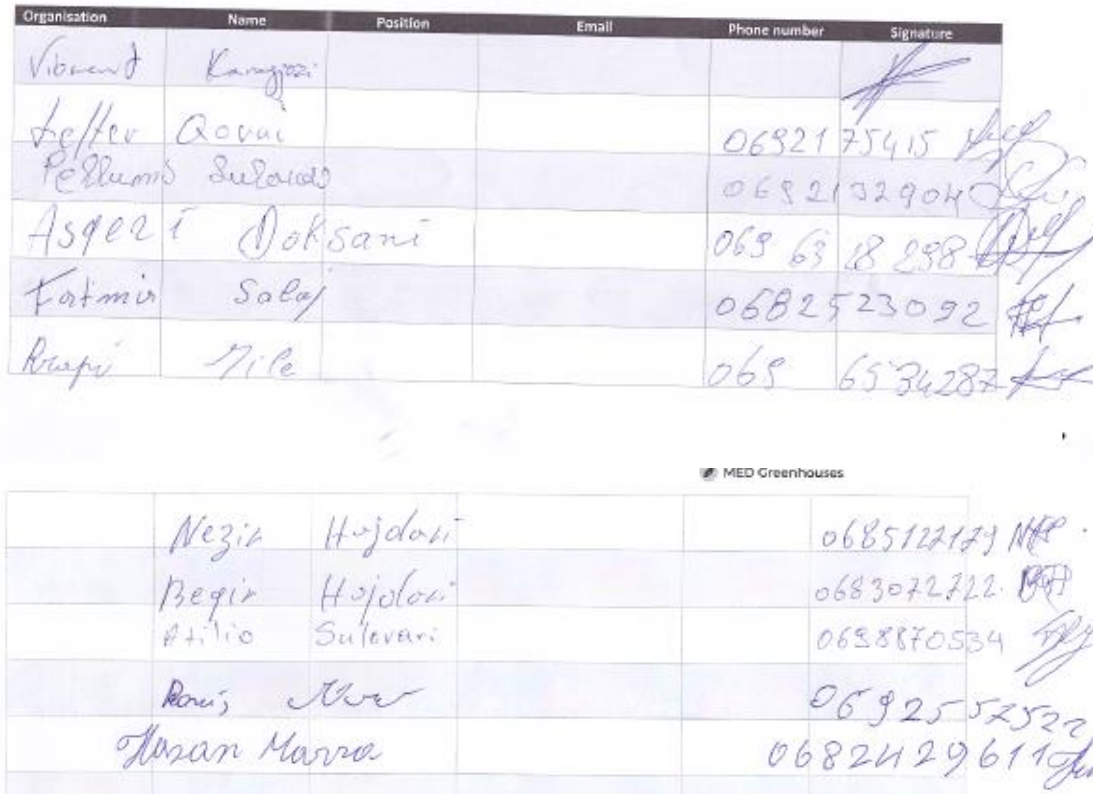 Organisation Name Position Email Phone number Signature
Vibmend
Lefter Qovai 0692175415
Pellumb 0692132904
Asqeri Doksani 069 63 18 298
Fatmir Salaj 0682523092
Rrapi Mile 069 6534287
MED Greenhouses
Nezir Hajdari 0685127179
Beqir Hajdari 0683072722.
Atilio Sulovari 0698870534
0692557522
Hasan Marra 0682429611